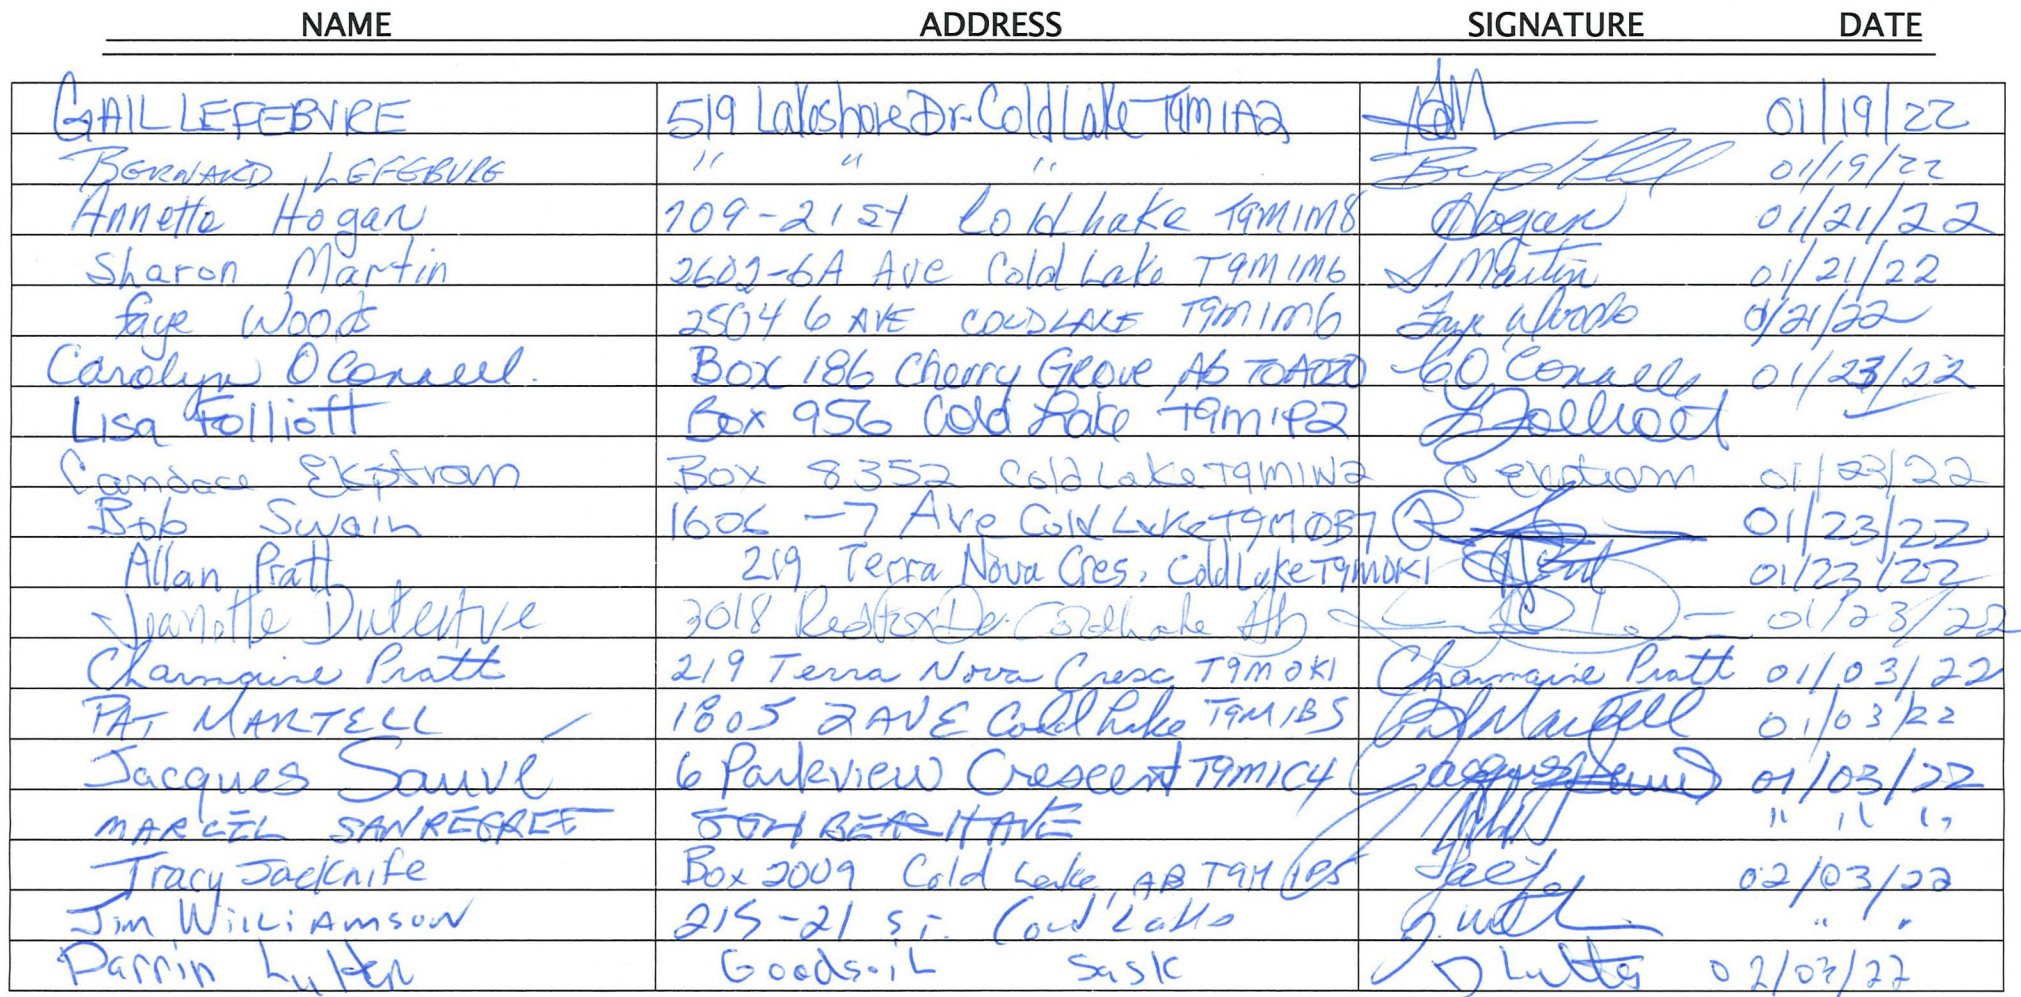 NAME ADDRESS SIGNATURE DATE
GAIL LEFEBVRE 519 Lakeshore Dr. Cold Lake T9M1A2 01/19/22
BERNARD LEFEBVRE " " " 01/19/22
Annette Hogan 109-21st Cold Lake T9M1M8 Hogan 01/21/22
Sharon Martin 2602-6A Ave Cold Lake T9M1M6 S Martin 01/21/22
faye Woods 2504 6 AVE COLD LAKE T9M1M6 Faye Woods 01/21/22
Carolyn OConnell. Box 186 Cherry Grove, Ab T0A0T0 CO'Connell 01/23/22
Lisa Folliott Box 956 Cold Lake T9M1P2 LFolliott
Candace Ekstrom Box 8352 Cold Lake T9M1N2 C Ekstrom 01/23/22
Bob Swain 1606 -7 Ave Cold Lake T9M0B7 01/23/22
Allan Pratt 219 Terra Nova Cres. Cold Lake T9M0K1 01/23/22
Jeanette Dutertre 3018 Redfox Dr. Cold Lake Ab 01/23/22
Charmaine Pratt 219 Terra Nova Cresc T9M0K1 Charmaine Pratt 01/03/22
PAT MARTELL 1805 2 AVE Cold Lake T9M1B5 Pat Martell 01/03/22
Jacques Sauvé 6 Parkview Crescent T9M1C4 Jacques Sauvé 01/03/22
MARCEL SANREGRET " " "
Tracy Jacknife Box 2009 Cold Lake, AB T9M 1P5 02/03/22
Jim Williamson 215-21 ST. Cold Lake " "
Darrin Goodsoil Sask 02/03/22